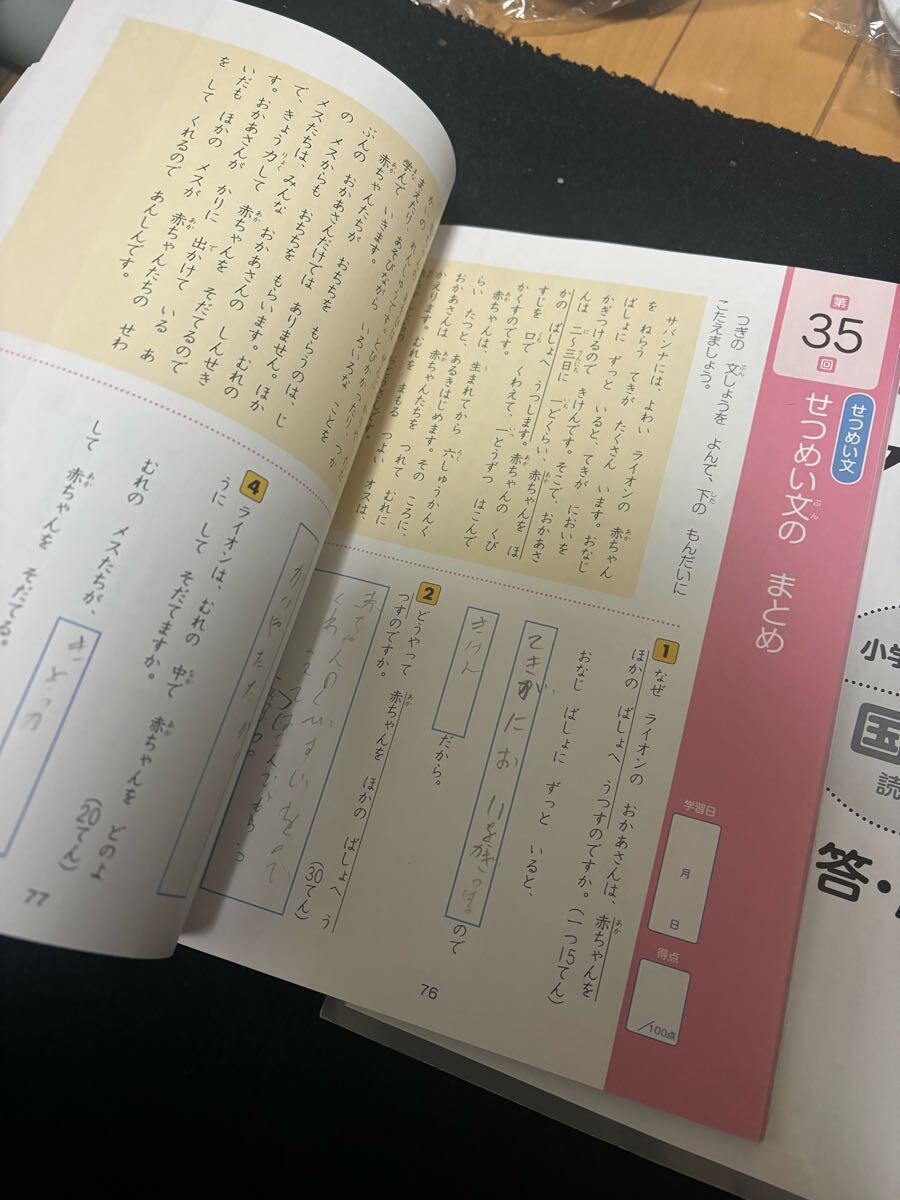 第35回
せつめい文
せつめい文の まとめ
学習日
月
日
得点
/100点
つぎの 文しょうを よんで、下の もんだいに
こたえましょう。
サバンナには、よわい ライオンの 赤ちゃん
を ねらう てきが たくさん います。おなじ
ばしょに ずっと いると、てきが においを
かぎつけるので きけんです。そこで、おかあさ
んは 二〜三日に 一どくらい、赤ちゃんを ほ
かの ばしょへ うつします。赤ちゃんの くび
すじを 口で くわえて、一とうずつ はこんで
かくすのです。
赤ちゃんは、生まれてから 六しゅうかんく
らい たつと、あるきはじめます。その ころに、
おかあさんは 赤ちゃんたちを つれて むれに
かえります。むれを まもる つよい オスは、
1 なぜ ライオンの おかあさんは、赤ちゃんを
ほかの ばしょへ うつすのですか。(一つ15てん)
おなじ ばしょに ずっと いると、
てきがにおいをかぎつける
ので
きけん
だから。
2 どうやって 赤ちゃんを ほかの ばしょへ う
つすのですか。
(30てん)
76
まえたり、あそびながら いろいろな ことを
学んで いきます。
赤ちゃんたちが おちちを もらうのは、じ
ぶんの おかあさんだけでは ありません。ほか
の メスからも おちちを もらいます。むれの
メスたちは、みんな おかあさんの しんせき
で、きょう力して 赤ちゃんを そだてるので
す。おかあさんが かりに 出かけて いる あ
いだも ほかの メスが 赤ちゃんたちの せわ
を して くれるので あんしんです。
4 ライオンは、むれの 中で 赤ちゃんを どのよ
うに して そだてますか。
(20てん)
むれの メスたちが、
して 赤ちゃんを そだてる。
77
小学
国
読
答・